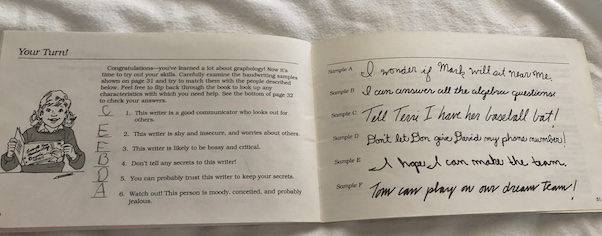 Your Turn!
Congratulations—you've learned a lot about graphology! Now it's
time to try out your skills. Carefully examine the handwriting samples
shown on page 31 and try to match them with the people described
below. Feel free to flip back through the book to look up any
characteristics with which you need help. See the bottom of page 32
to check your answers.
C 1. This writer is a good communicator who looks out for
others.
E 2. This writer is shy and insecure, and worries about others.
F 3. This writer is likely to be bossy and critical.
B 4. Don't tell any secrets to this writer!
D 5. You can probably trust this writer to keep your secrets.
A 6. Watch out! This person is moody, conceited, and probably
jealous.
Sample A I wonder if Mark will sit near me.
Sample B I can answer all the algebra questions
Sample C Tell Terri I have her baseball bat!
Sample D Don't let Don give David my phone number!
Sample E I hope I can make the team.
Sample F Tom can play on our dream team!